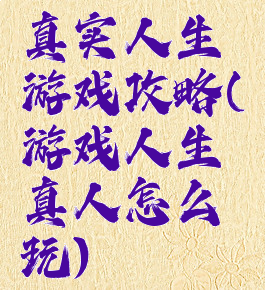 真实人生
游戏攻略(
游戏人生
真人怎么
玩)